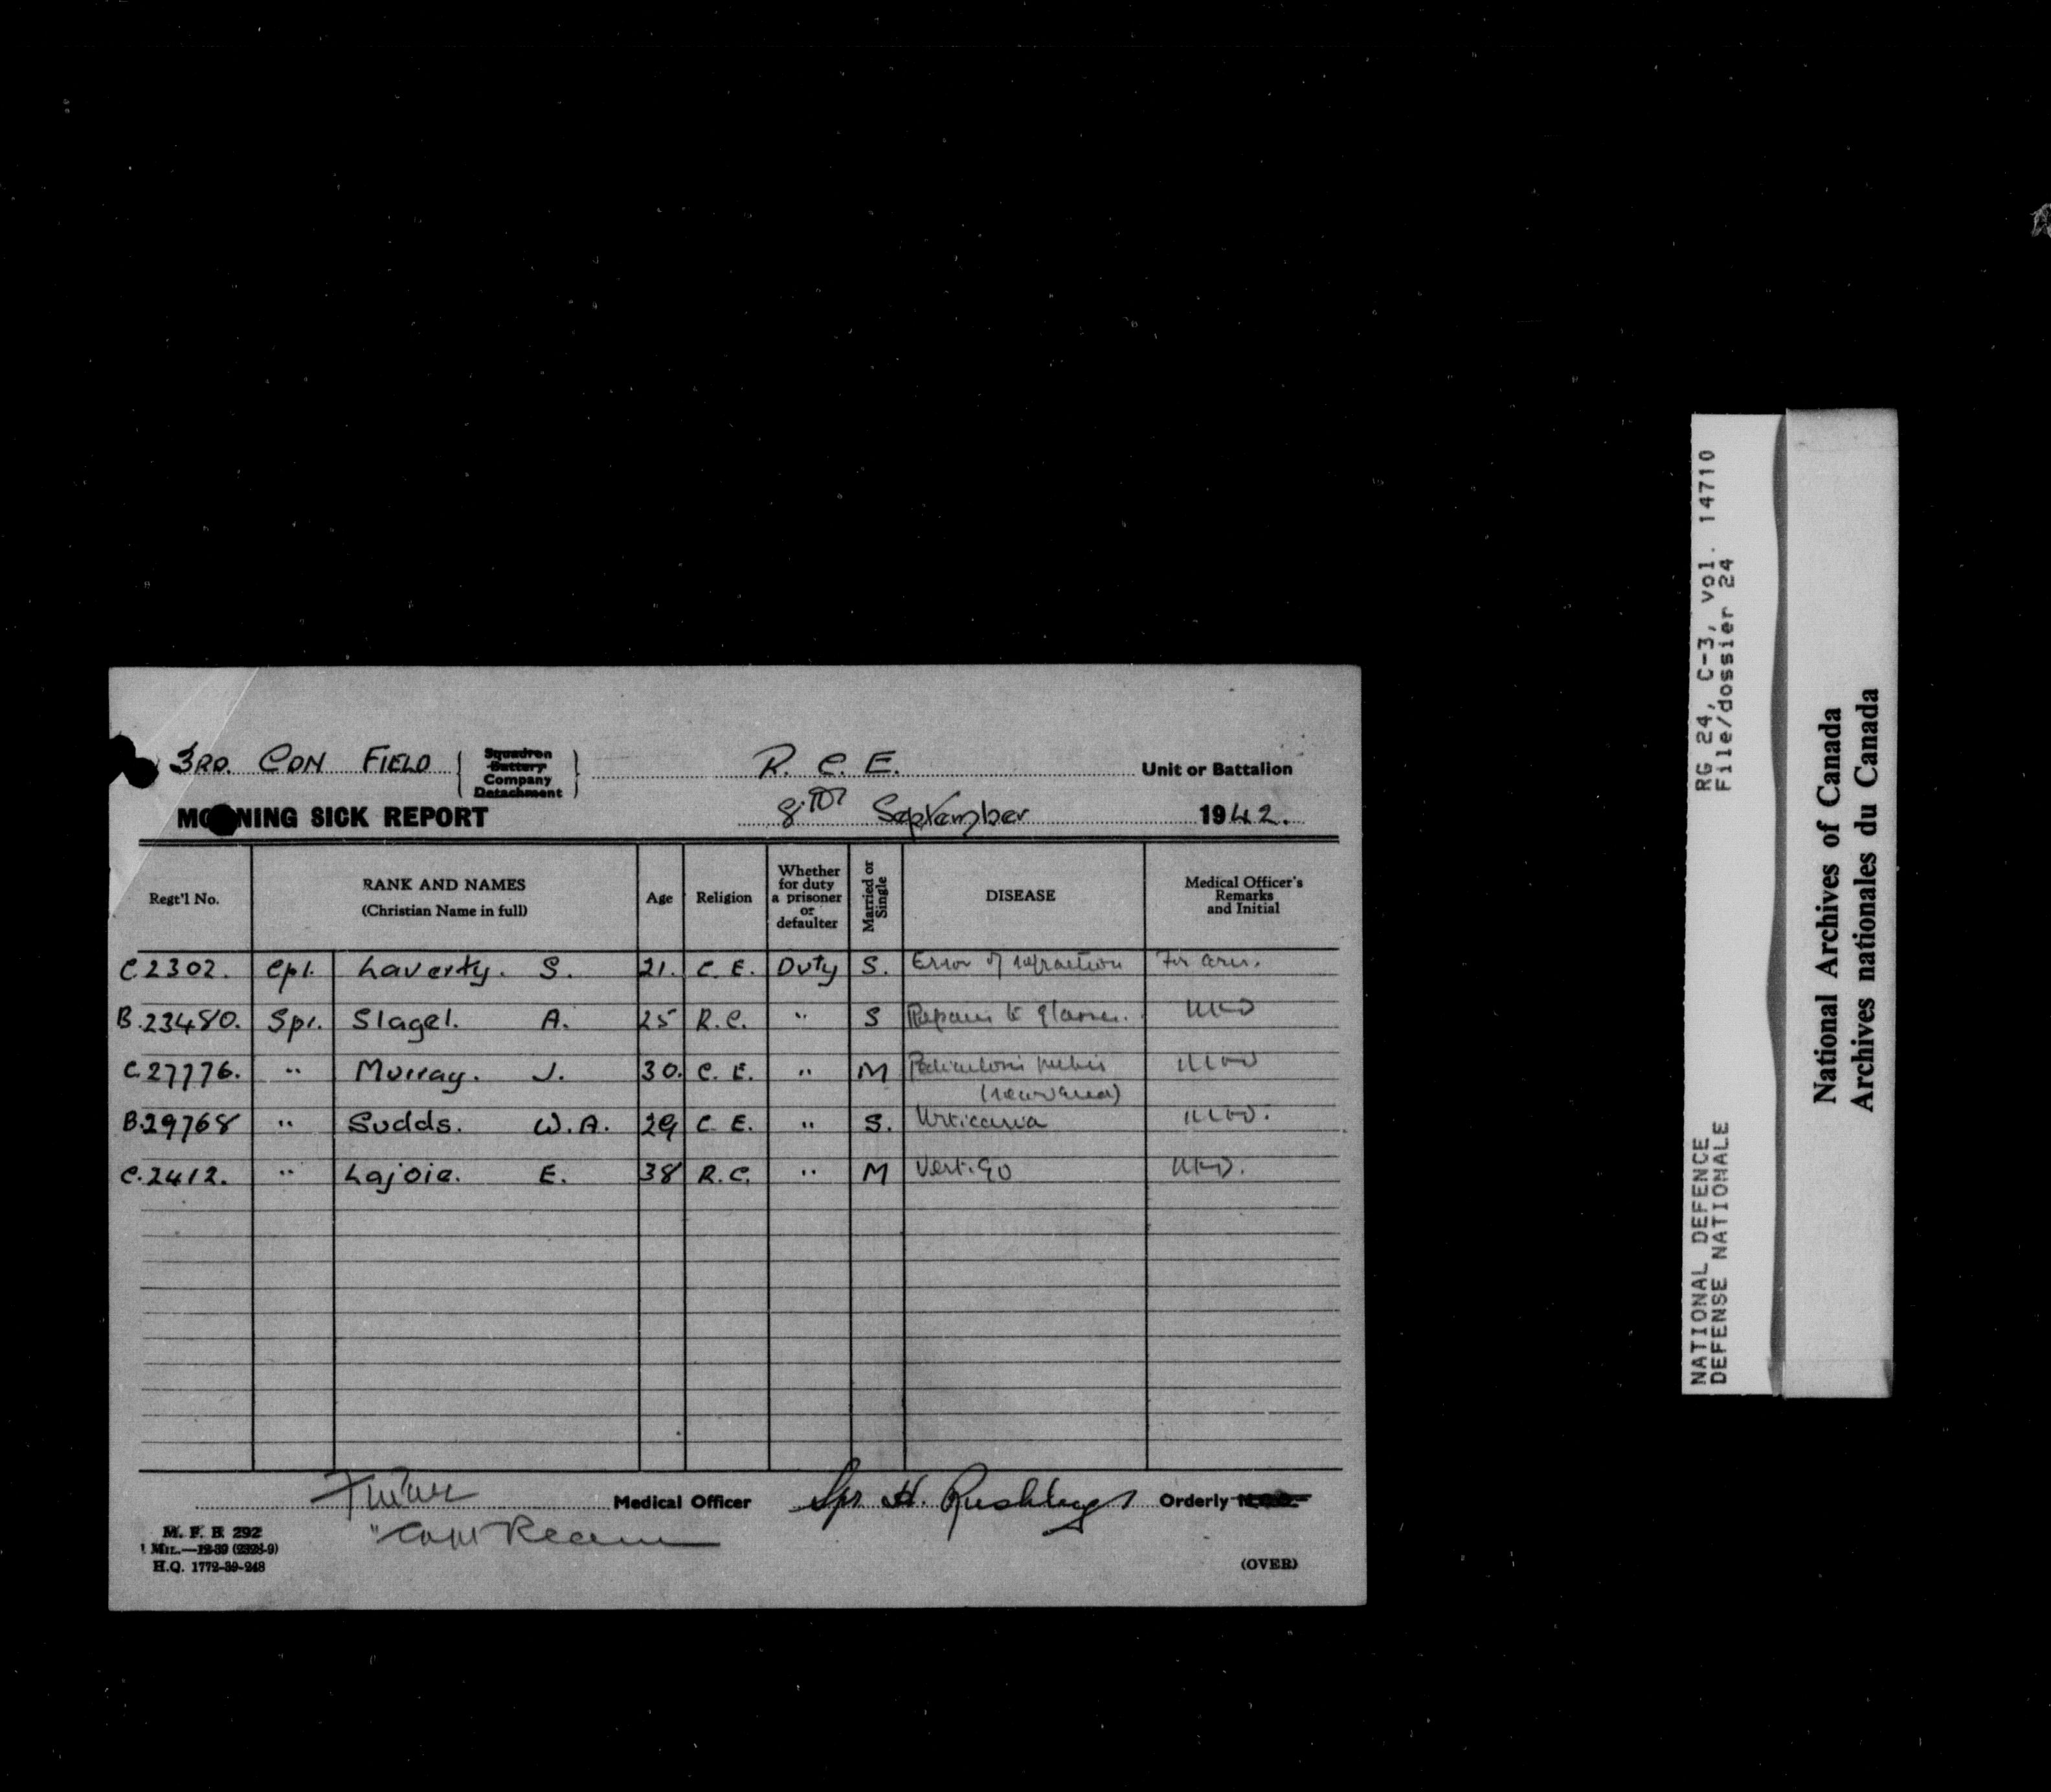 3RD. CDN FIELD { Squadron Battery Company Detachment } R. C. E. Unit or Battalion
MORNING SICK REPORT 8TH September 1942.
Regt'l No. RANK AND NAMES (Christian Name in full) Age Religion Whether for duty a prisoner or defaulter Married or Single DISEASE Medical Officer's Remarks and Initial
C.2302. Cpl. Laverty. S. 21. C. E. Duty S. Error of refraction For
B.23480. Spr. Slagel. A. 25 R.C. " S Repairs to glasses.
C.27776. " Murray. J. 30. C. E. " M Pediculosis pubis
B.29768 " Sudds. W.A. 29 C. E. " S. Urticaria
C.2412. " Lajoie. E. 38 R.C. " M Vertigo
Medical Officer Spr H. Orderly N.C.O.
M. F. B. 292
1 MIL.—12-39 (2328-9)
H.Q. 1772-39-248
(OVER)
RG 24, C-3, vol. 14710
File/dossier 24
NATIONAL DEFENCE
DEFENSE NATIONALE
National Archives of Canada
Archives nationales du Canada